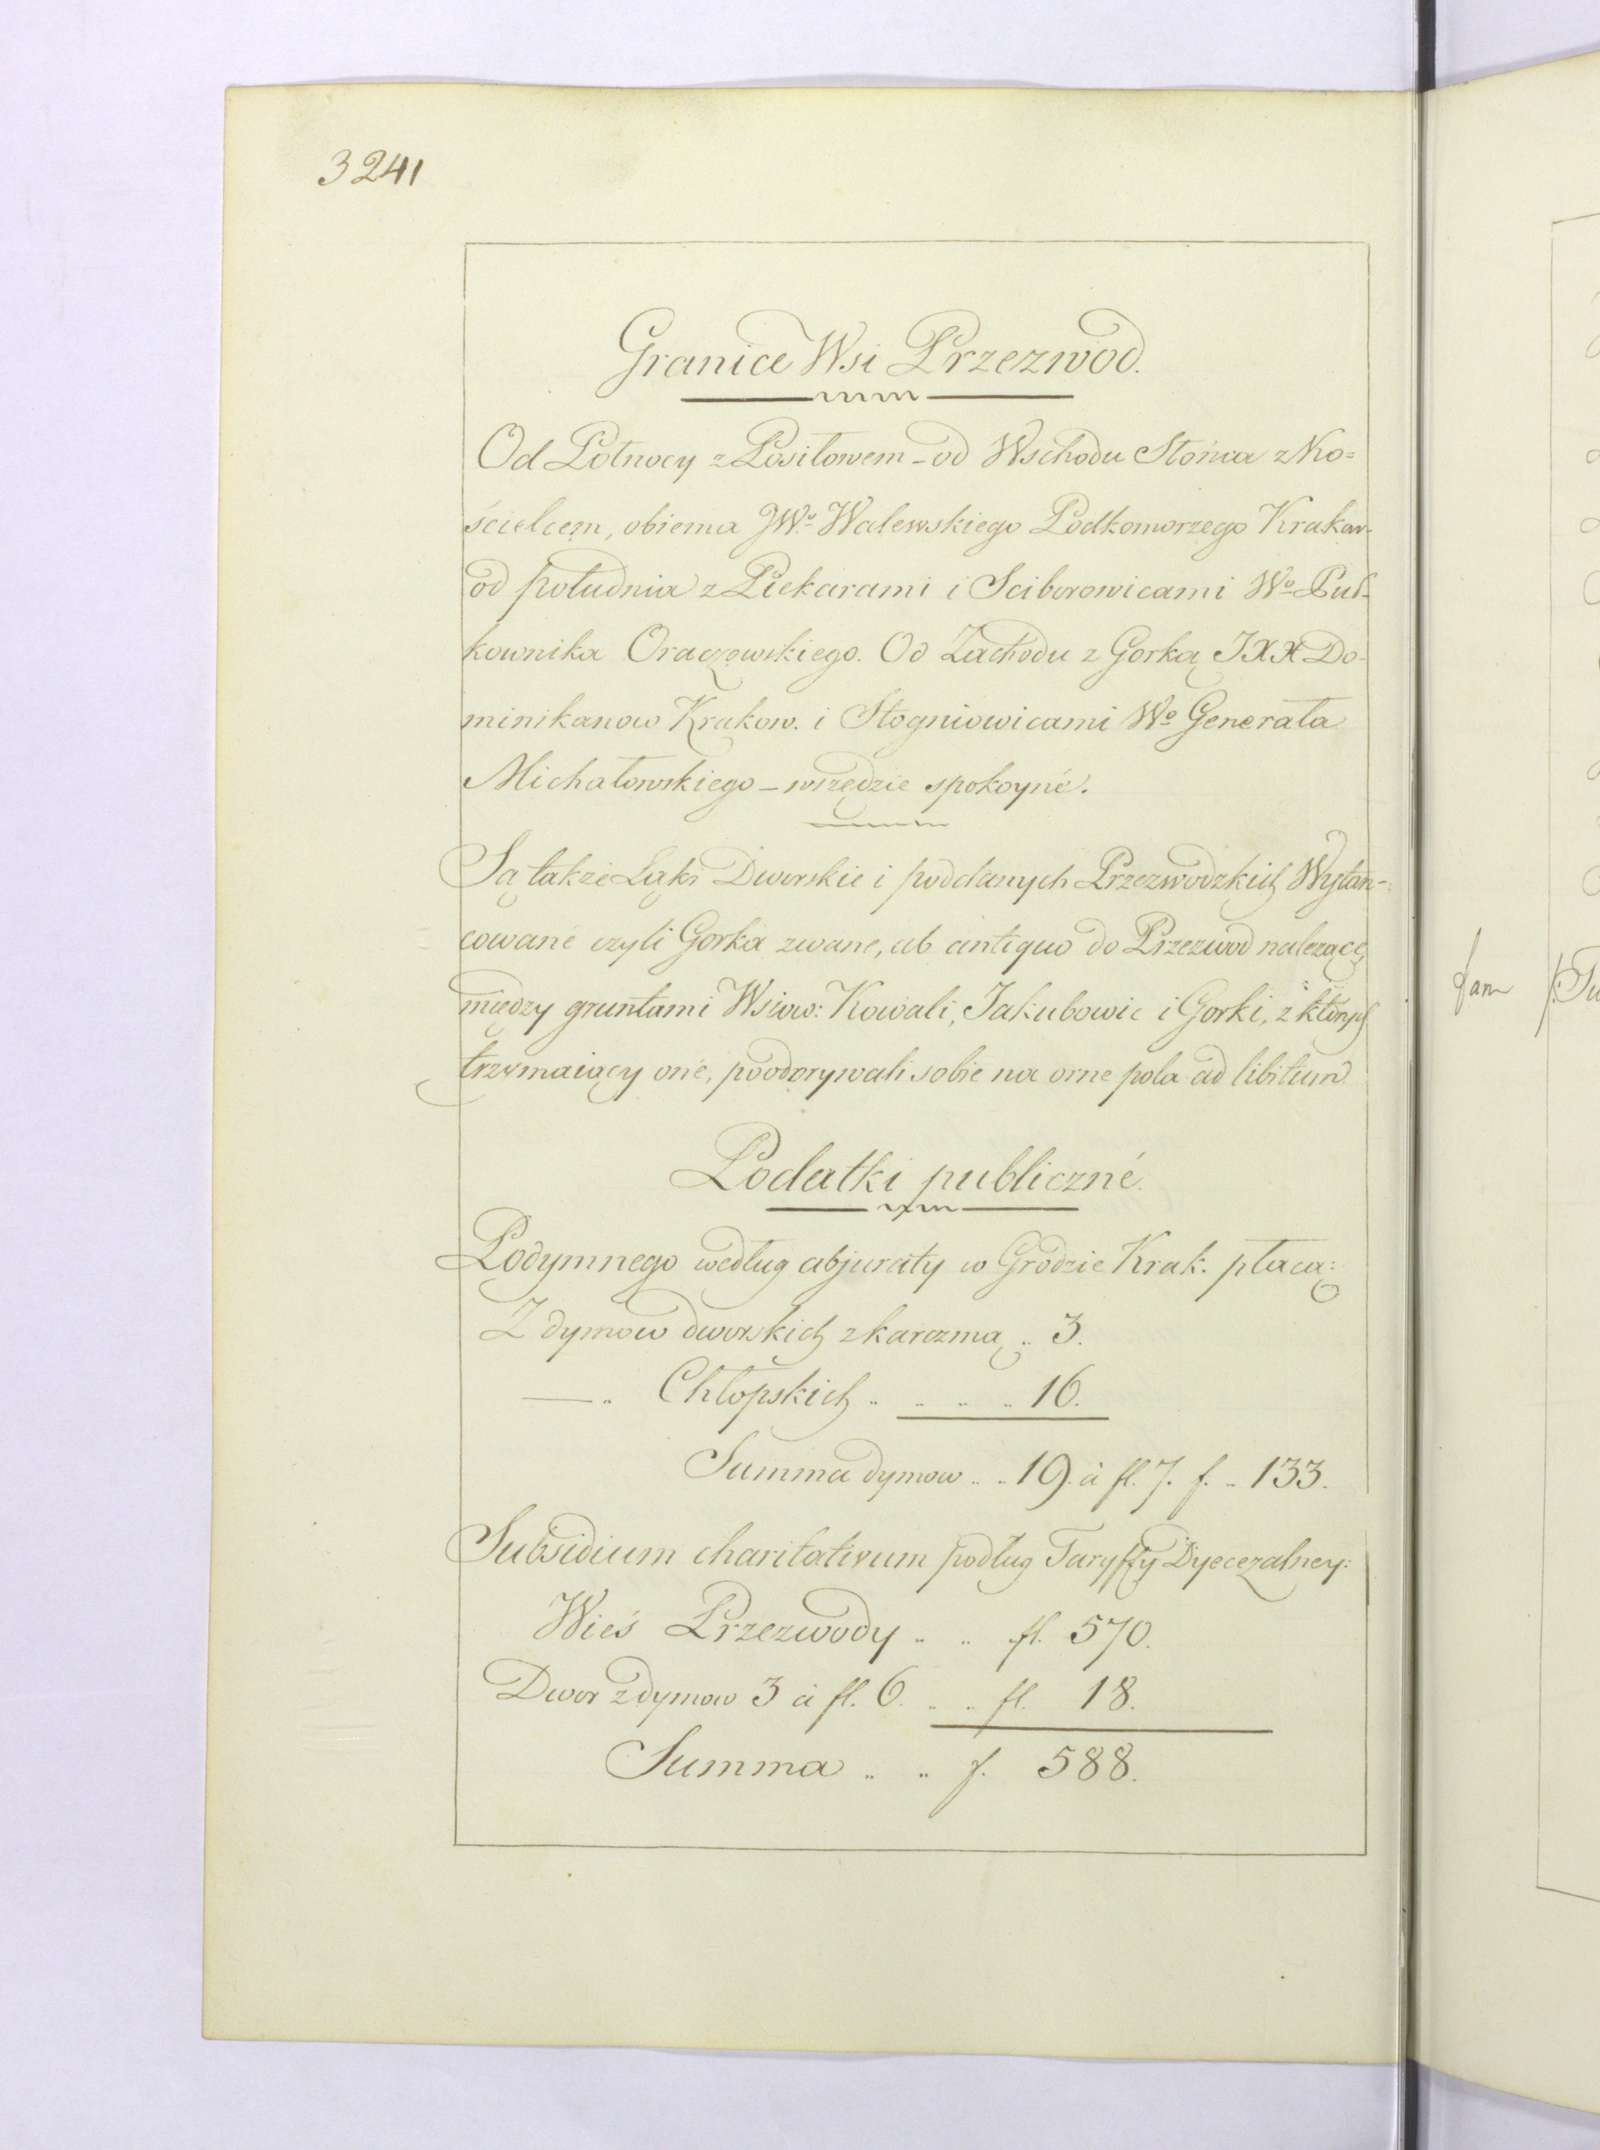 3241
Granice Wsi Przezwod.
Od Połnocy z Posiłowem – od Wschodu Słońca z Ko=
ścielcem, obiema JWº Walewskiego Podkomorzego Krakow-
od południa z Piekarami i Sciborowicami Wº Puł-
kownika Oraczowskiego. Od Zachodu z Gorką JXX Do-
minikanow Krakow. i Stogniowicami Wº Generała
Michałowskiego – wszędzie spokoyné.
Są także Łąki Dworskie i poddanych Przezwodzkich Wytan-
cowané czyli Gorka zwane, ab antiquo do Przezwod należącé,
między gruntami Wsiow: Kowali, Jakubowic i Gorki, z których
trzymaiący oné, poodorywali sobie na orne pola ad libitum
Podatki publiczné.
Podymnego według abjuraty w Grodzie Krak. płacą:
Z dymow dworskich z karczmą .. 3.
— .. Chłopskich .. .. .. .. 16.
Summa dymow .. .. 19. à fl. 7. f. .. 133.
Subsidium charitativum podług Taryffy Dyecezalney:
Wieś Przezwody .. .. fl. 570.
Dwor z dymow 3 à fl. 6. .. .. fl. 18.
Summa .. .. f. 588.